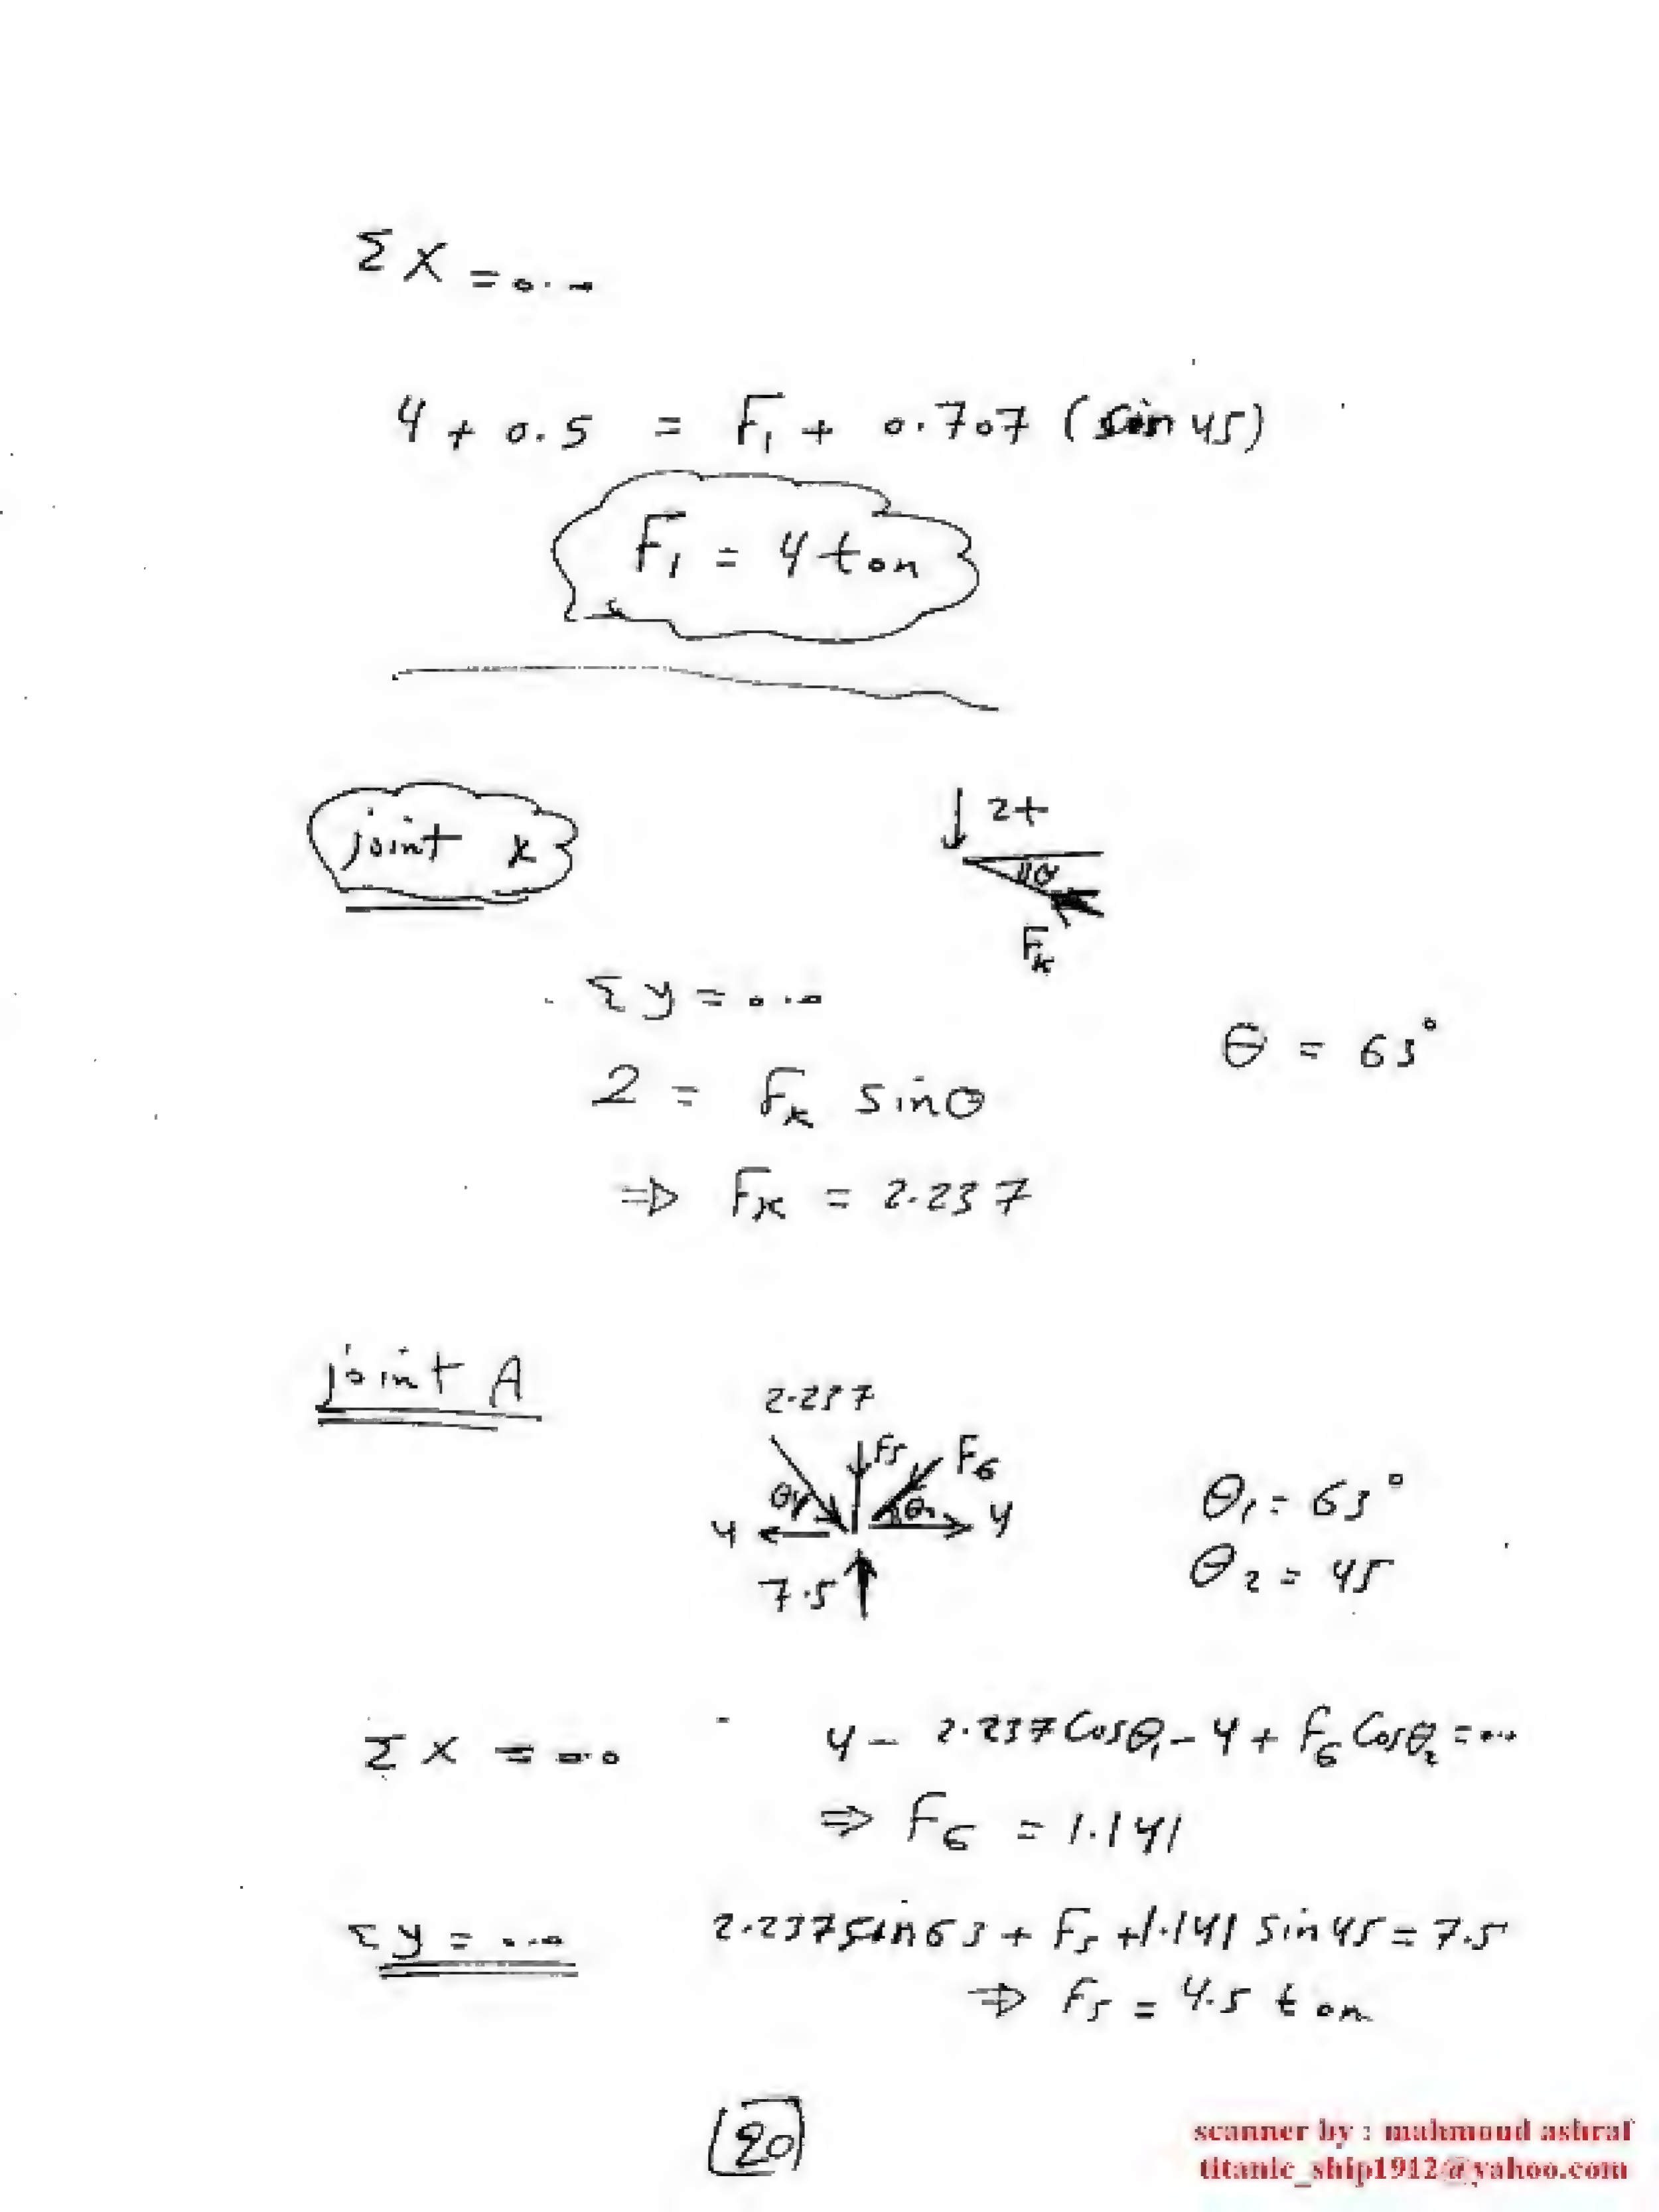 Σ X = 0.0
4 + 0.5 = F₁ + 0.707 (sin 45)
F₁ = 4 ton
joint k
2t
θ
Fₖ
Σ y = 0.0
θ = 63°
2 = Fₖ sin θ
⇒ Fₖ = 2.237
joint A
2.237
F₅ F₆
θ₁ θ₂
4 4
7.5
θ₁ = 63°
θ₂ = 45
Σ X = 0.0 4 - 2.237 Cosθ₁ - 4 + F₆ Cosθ₂ = 0.0
⇒ F₆ = 1.141
Σ y = 0.0 2.237 sin 63 + F₅ + 1.141 sin 45 = 7.5
⇒ F₅ = 4.5 ton
20
scanner by : mahmoud ashraf
titanic_ship1912@yahoo.com